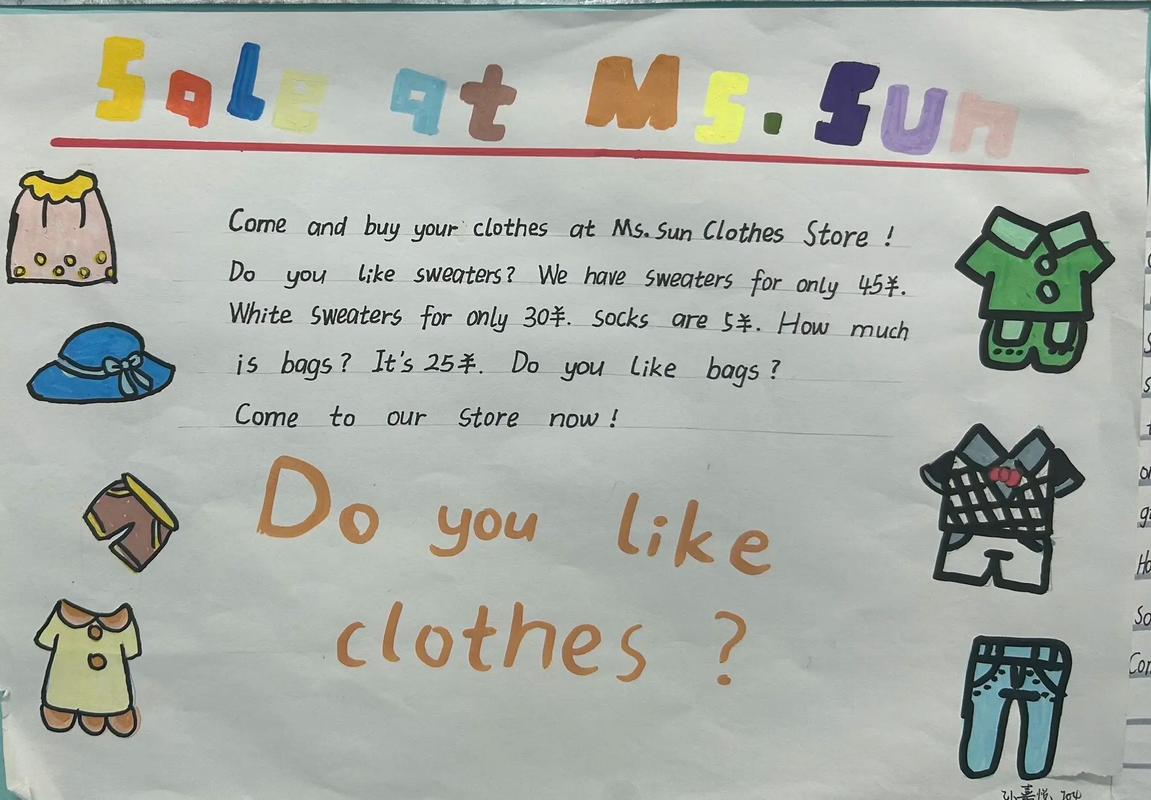 Sale at Ms. Sun
Come and buy your clothes at Ms. Sun Clothes Store !
Do you like sweaters? We have sweaters for only 45¥.
White sweaters for only 30¥. Socks are 5¥. How much
is bags? It's 25¥. Do you like bags?
Come to our store now!
Do you like
clothes ?
孙嘉悦 704